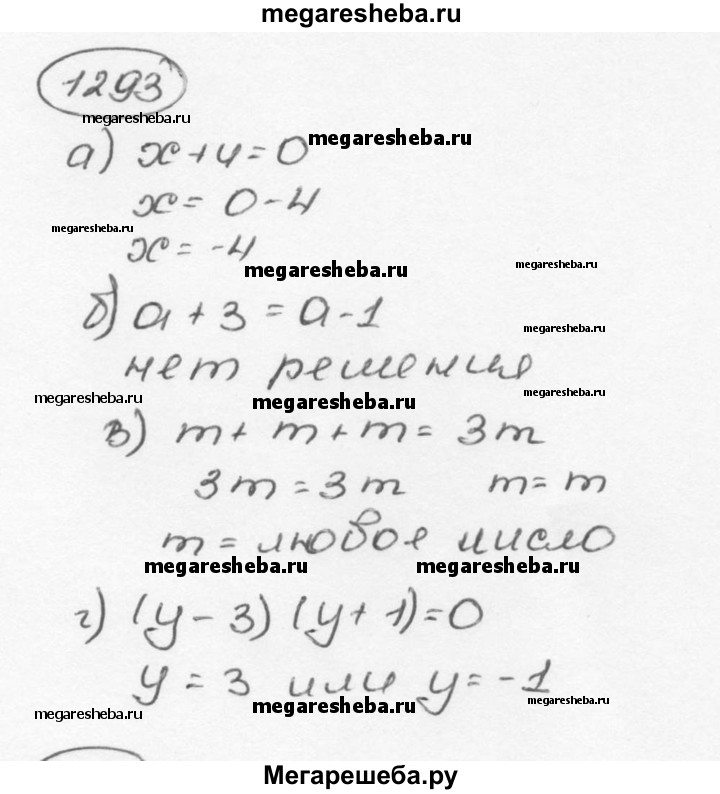 megaresheba.ru
1293
megaresheba.ru
а) x+4=0 megaresheba.ru
x= 0-4
megaresheba.ru
x=-4
megaresheba.ru megaresheba.ru
б) a+3=a-1 megaresheba.ru
нет решения
megaresheba.ru megaresheba.ru megaresheba.ru
в) m+m+m=3m
3m=3m m=m
m=любое число
megaresheba.ru megaresheba.ru
г) (y-3)(y+1)=0
y=3 или y=-1
megaresheba.ru megaresheba.ru megaresheba.ru
Мегарешеба.ру